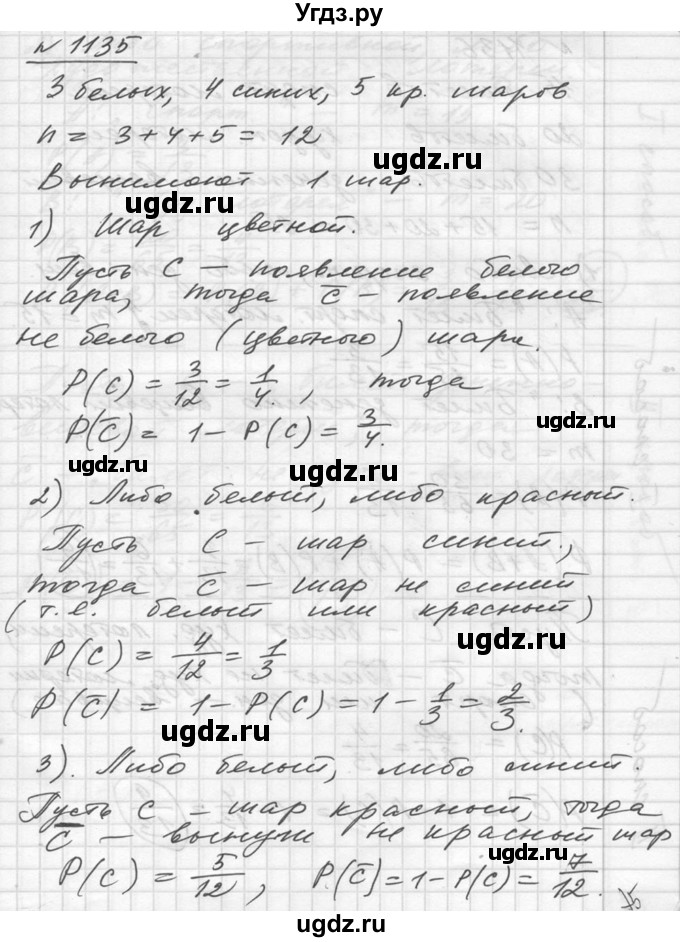 Угдз.ру
№ 1135
3 белых, 4 синих, 5 кр. шаров
n = 3+4+5 = 12
ugdz.ru
Вынимают 1 шар.
ugdz.ru
1) Шар цветной.
Пусть C – появление белого
ugdz.ru
шара, тогда C̅ – появление
не белого (цветного) шара.
P(C) = 3/12 = 1/4. , тогда
ugdz.ru
P(C̅) = 1 – P(C) = 3/4.
ugdz.ru
2) Либо белый, либо красный.
ugdz.ru
Пусть C – шар синий.,
тогда C̅ – шар не синий
(т.е. белый или красный)
ugdz.ru
P(C) = 4/12 = 1/3
P(C̅) = 1 – P(C) = 1 – 1/3 = 2/3.
ugdz.ru
3). Либо белый, либо синий.
Пусть C – шар красный, тогда
ugdz.ru
C̅ – вынут не красный шар
ugdz.ru
P(C) = 5/12 , P(C̅) = 1 – P(C) = 7/12.
ugdz.ru
Угдз.ру